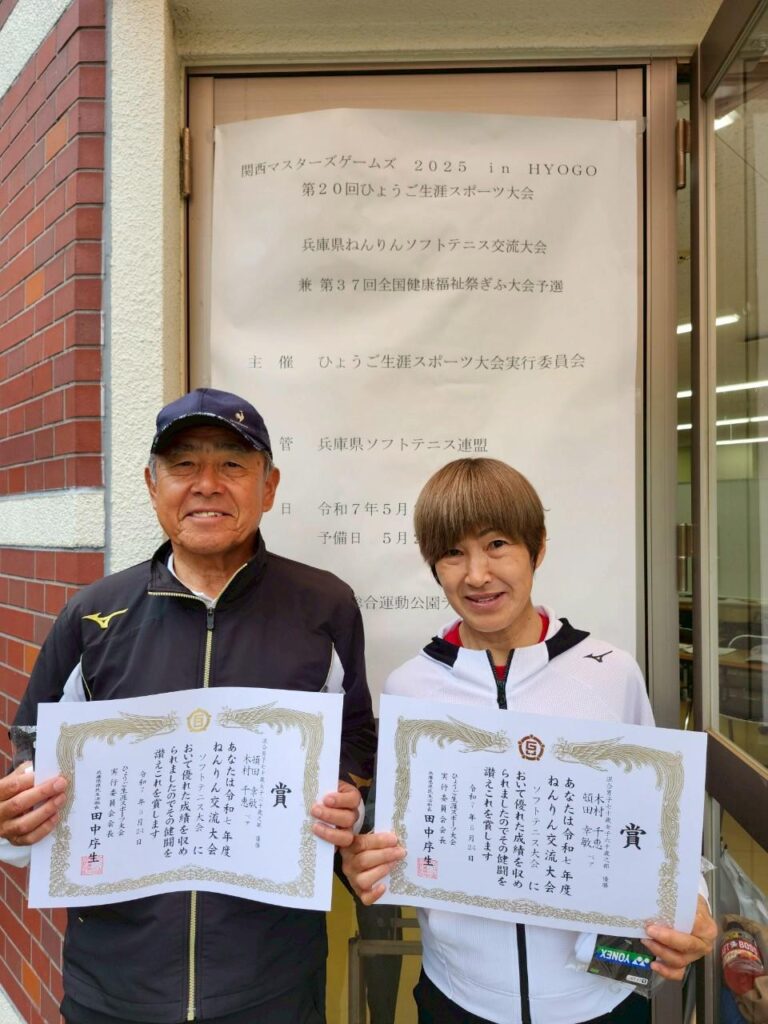 関西マスターズゲームズ 2025 in HYOGO
第20回ひょうご生涯スポーツ大会
兵庫県ねんりんソフトテニス交流大会
兼 第37回全国健康福祉祭ぎふ大会予選
主 催 ひょうご生涯スポーツ大会実行委員会
管 兵庫県ソフトテニス連盟
日 令和7年5月
予備日 5月2
総合運動公園テ
賞
木村 千恵
あなたは令和七年度
ねんりん交流大会
ソフトテニス大会 に
おいて優れた成績を収め
られましたのでその健闘を
讃えこれを賞します
令和7年5月24日
ひょうご生涯スポーツ大会
実行委員会会長
田中序生
賞
混合男子七十歳女子六十歳之部 優勝
木村 千恵
頓田 幸敏 ペア
あなたは令和七年度
ねんりん交流大会
ソフトテニス大会 に
おいて優れた成績を収め
られましたのでその健闘を
讃えこれを賞します
令和7年5月24日
ひょうご生涯スポーツ大会
実行委員会会長
田中序生
YONEX